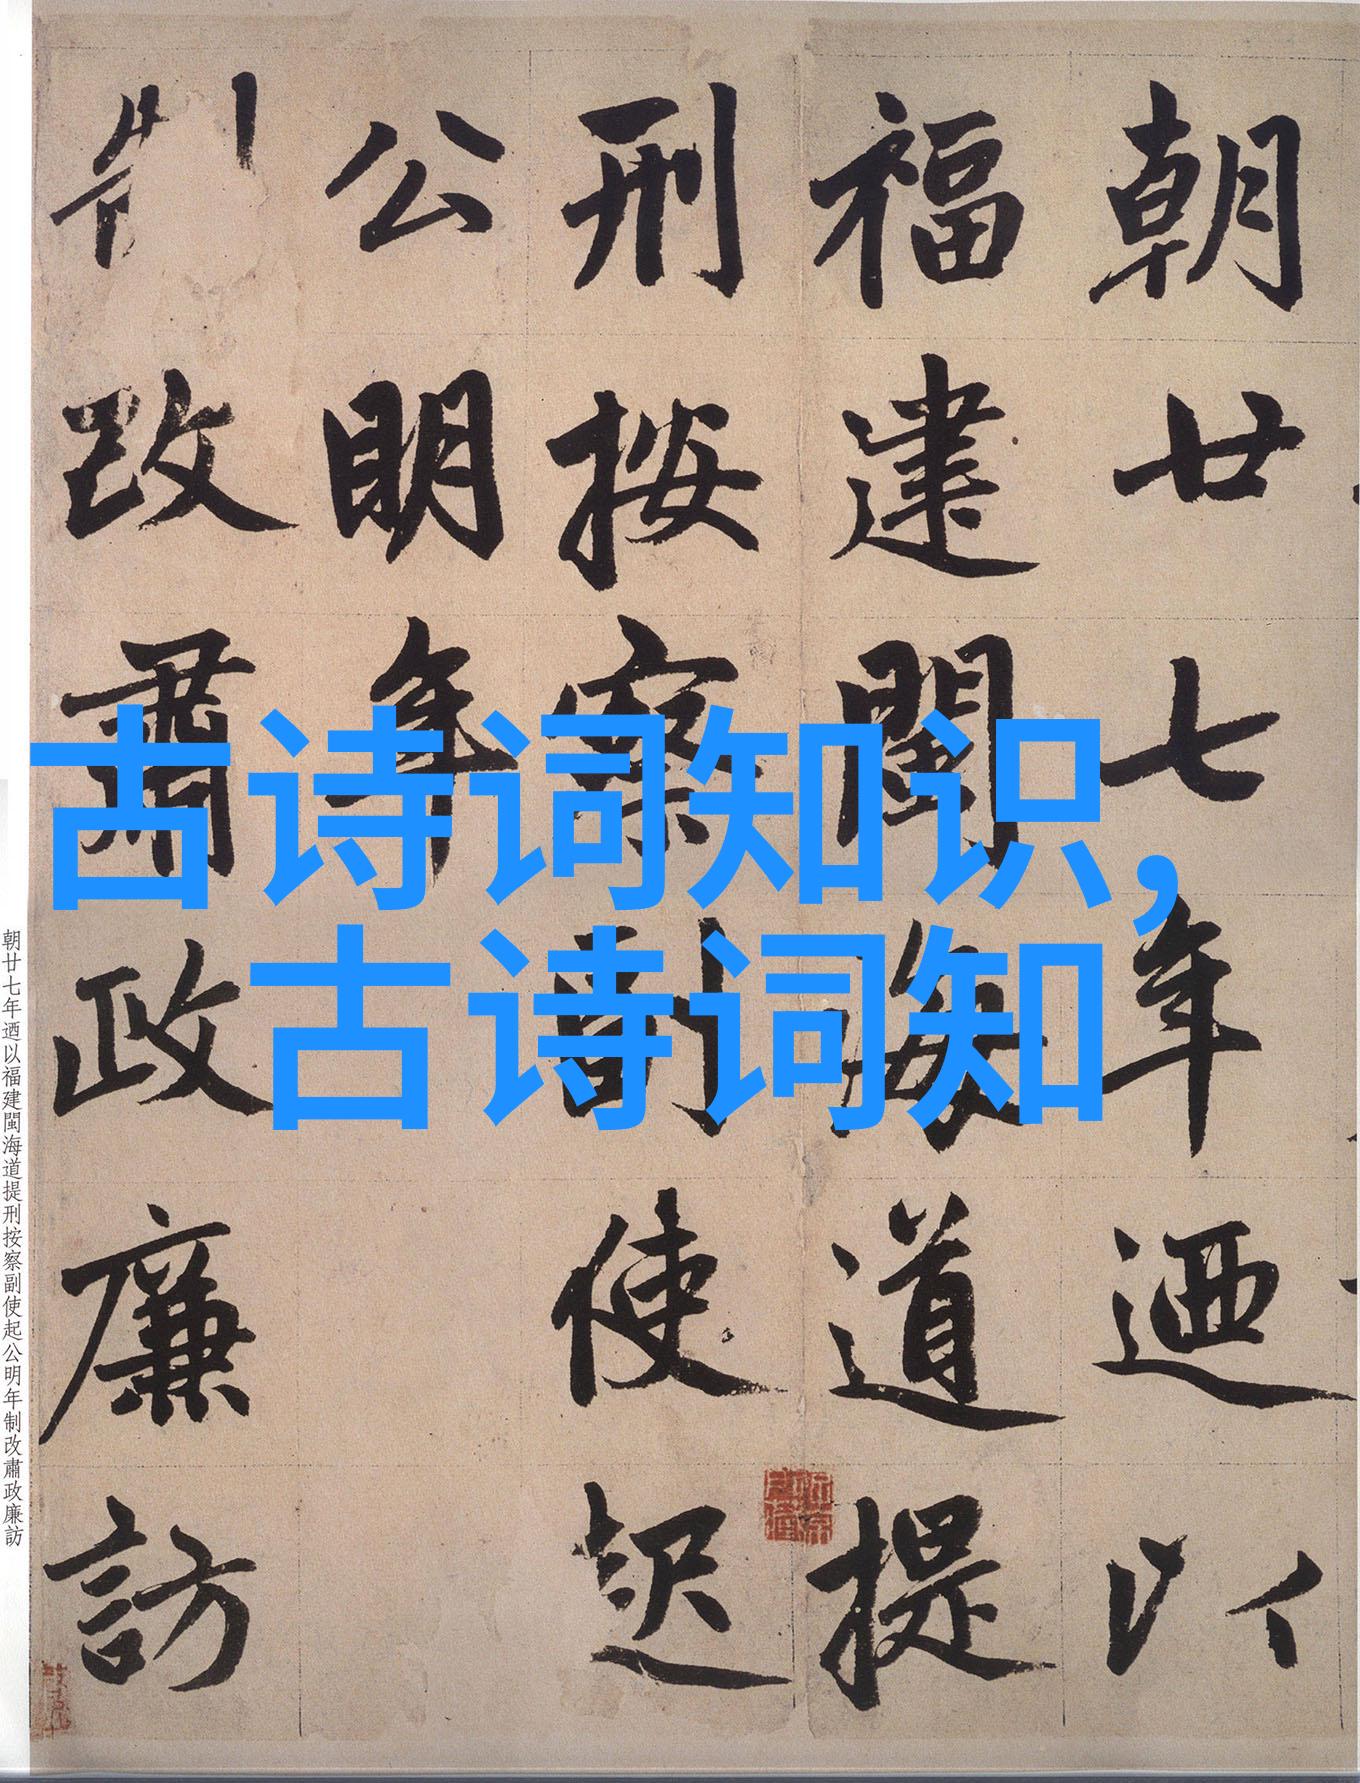 朝廿七年迺以
福建閩海道提
刑按察副使起
公明年
制改肅政廉訪
古诗词知识,
古诗词知
朝廿七年迺以福建閩海道提刑按察副使起公明年制改肅政廉訪